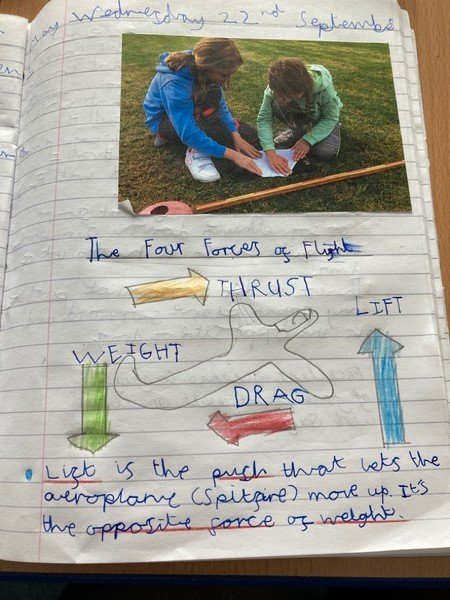 Wednesday 22nd September
The Four Forces of Flight
THRUST
LIFT
WEIGHT
DRAG
Lift is the push that lets the
aeroplane (Spitfire) move up. It's
the opposite force of weight.